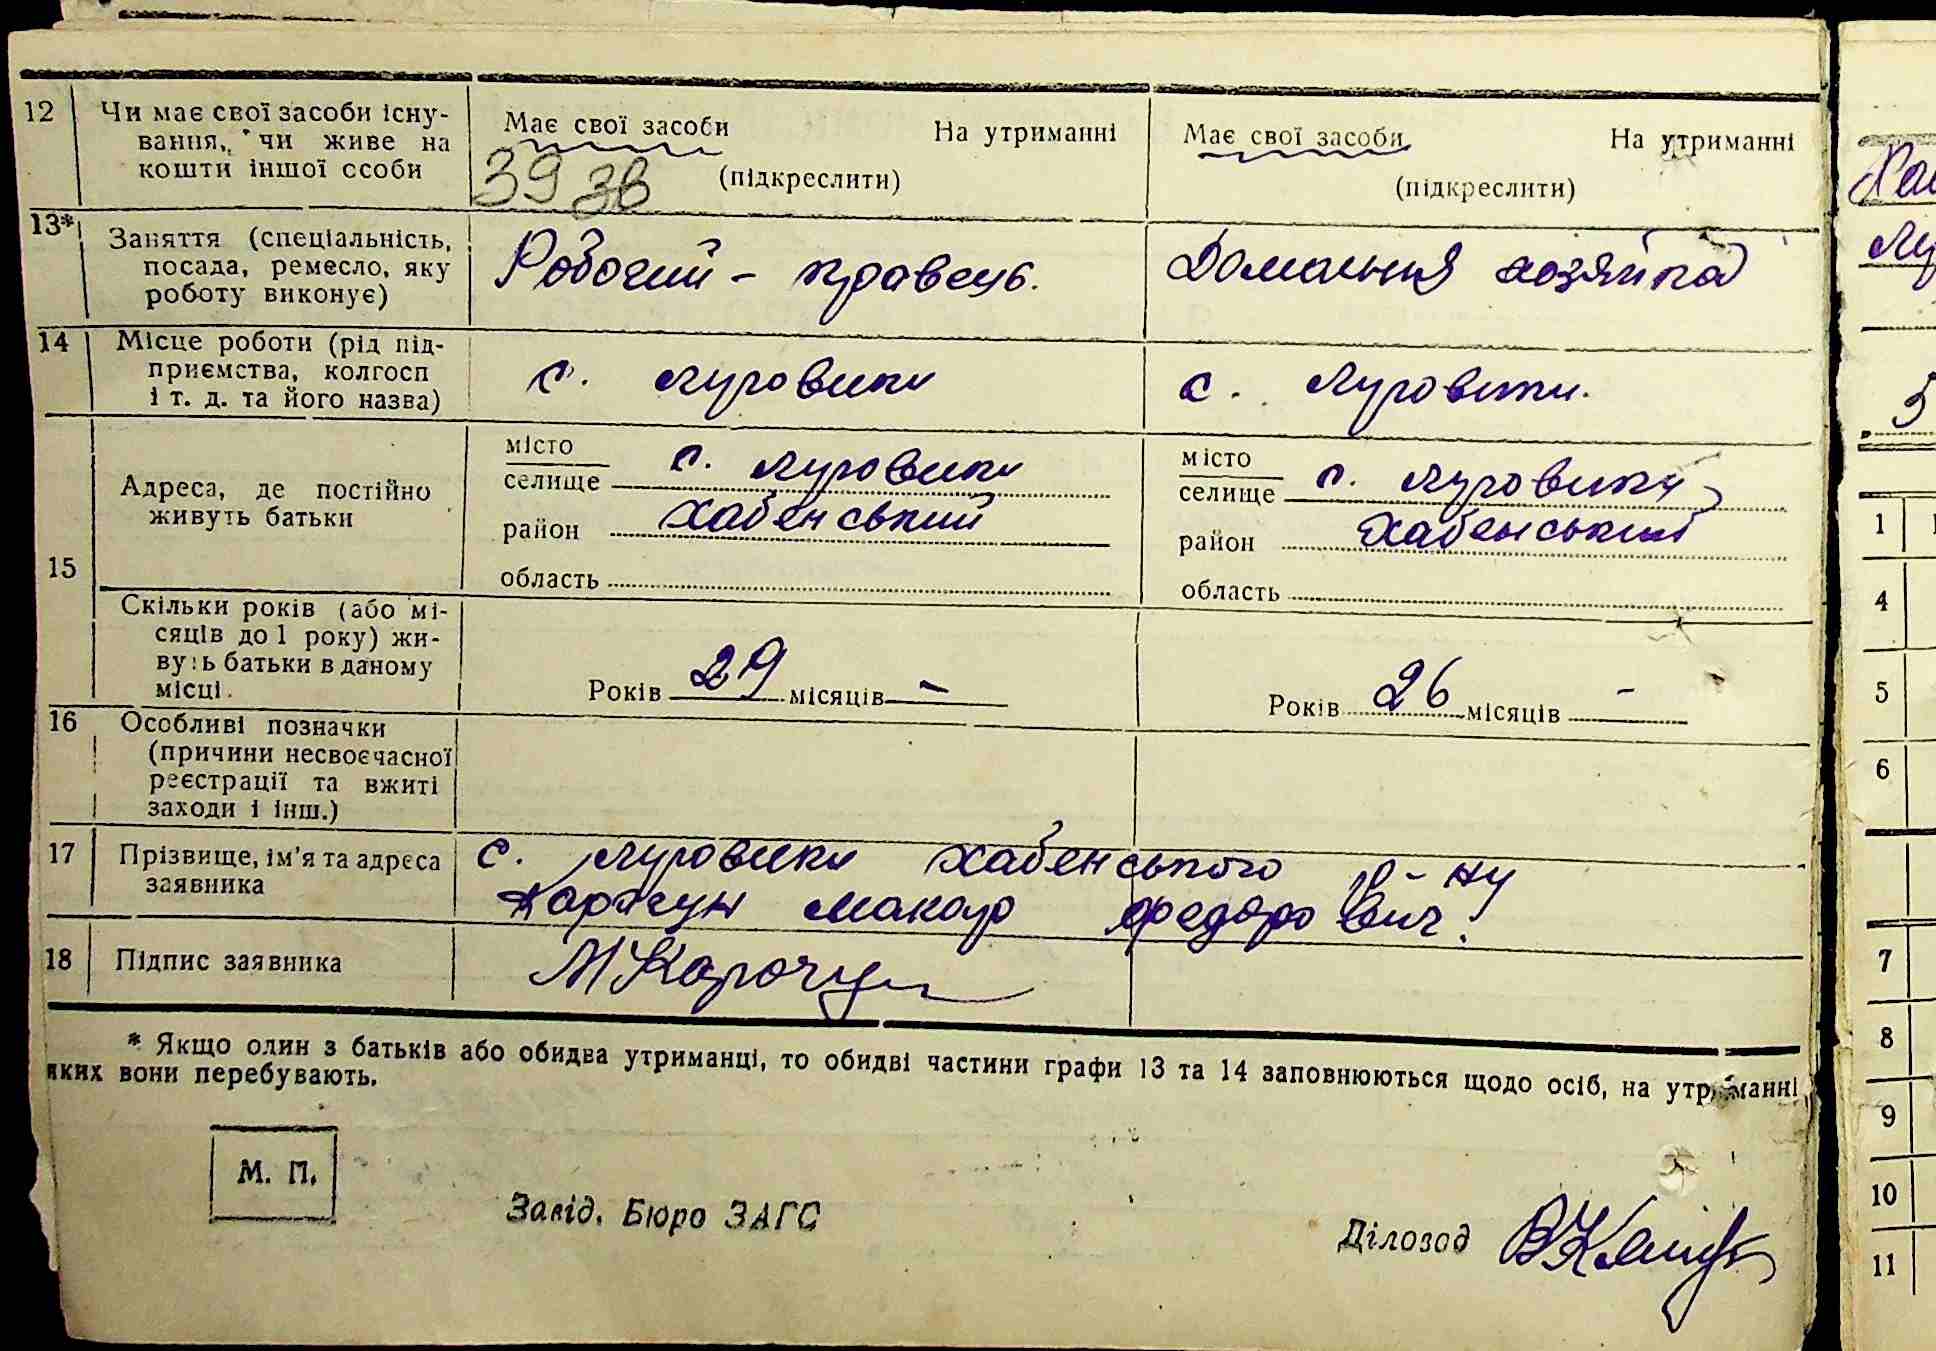 12
Чи має свої засоби існу-
вання, чи живе на
кошти іншої ссоби
Має свої засоби
На утриманні
(підкреслити)
39 зв
Має свої засоби
На утриманні
(підкреслити)
13*
Заняття (спеціальність,
посада, ремесло, яку
роботу виконує)
Робочий - кравець.
Домашня хозяйка
14
Місце роботи (рід під-
приємства, колгосп
і т. д. та його назва)
с. Луговики
с. Луговики.
15
Адреса, де постійно
живуть батьки
місто
селище с. Луговики
район Хабенський
область
місто
селище с. Луговики
район Хабенський
область
Скільки років (або мі-
сяців до 1 року) жи-
вуть батьки в даному
місці.
Років 29 місяців -
Років 26 місяців -
16
Особливі позначки
(причини несвоєчасної
реєстрації та вжиті
заходи і інш.)
17
Прізвище, ім'я та адреса
заявника
с. Луговики Хабенського р-ну
Макар Федорович.
18
Підпис заявника
* Якщо один з батьків або обидва утриманці, то обидві частини графи 13 та 14 заповнюються щодо осіб, на утриманні
яких вони перебувають.
М. П.
Завід. Бюро ЗАГС
Діловод
5
1
4
5
6
7
8
9
10
11